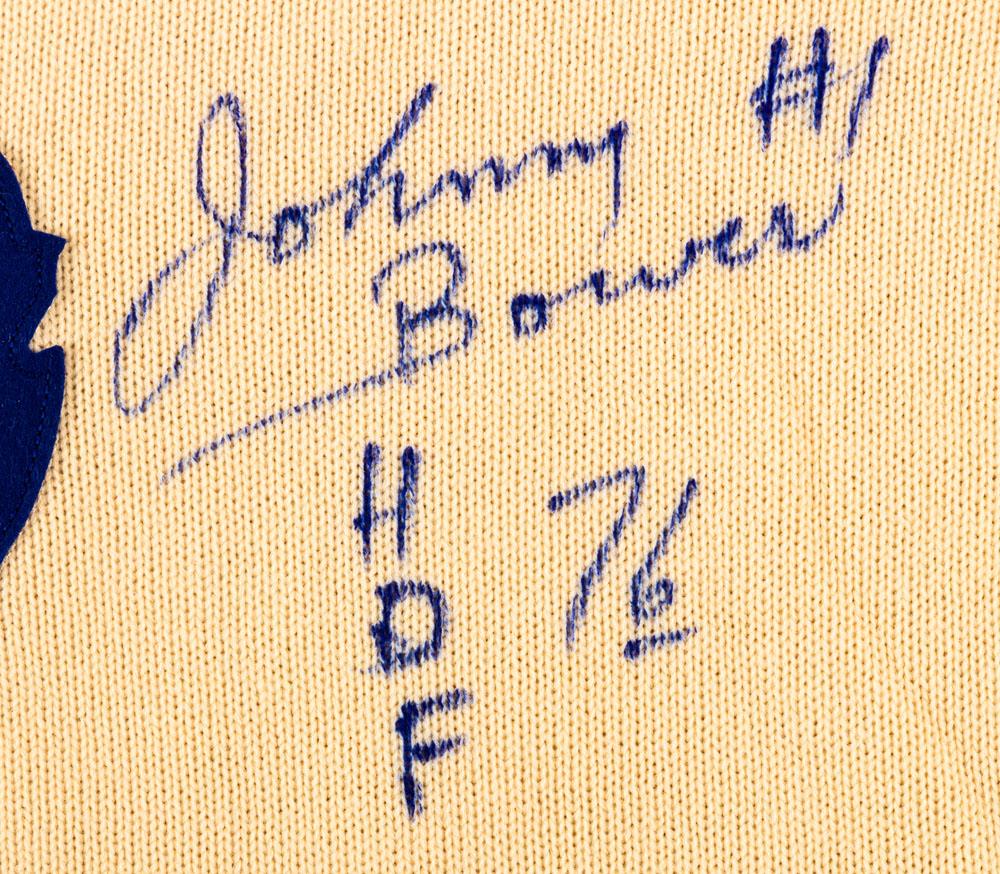 Johnny #1
Bower
H 76
O
F